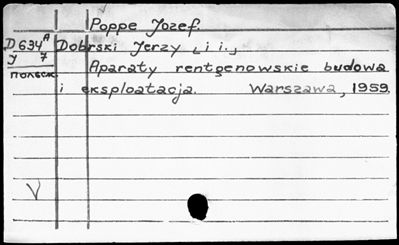 Poppe Jozef.
Д634А Dobrski Jerzy [i i.]
У 7 Aparaty rentgenowskie budowa
польск. i eksploatacja. Warszawa, 1959.
V